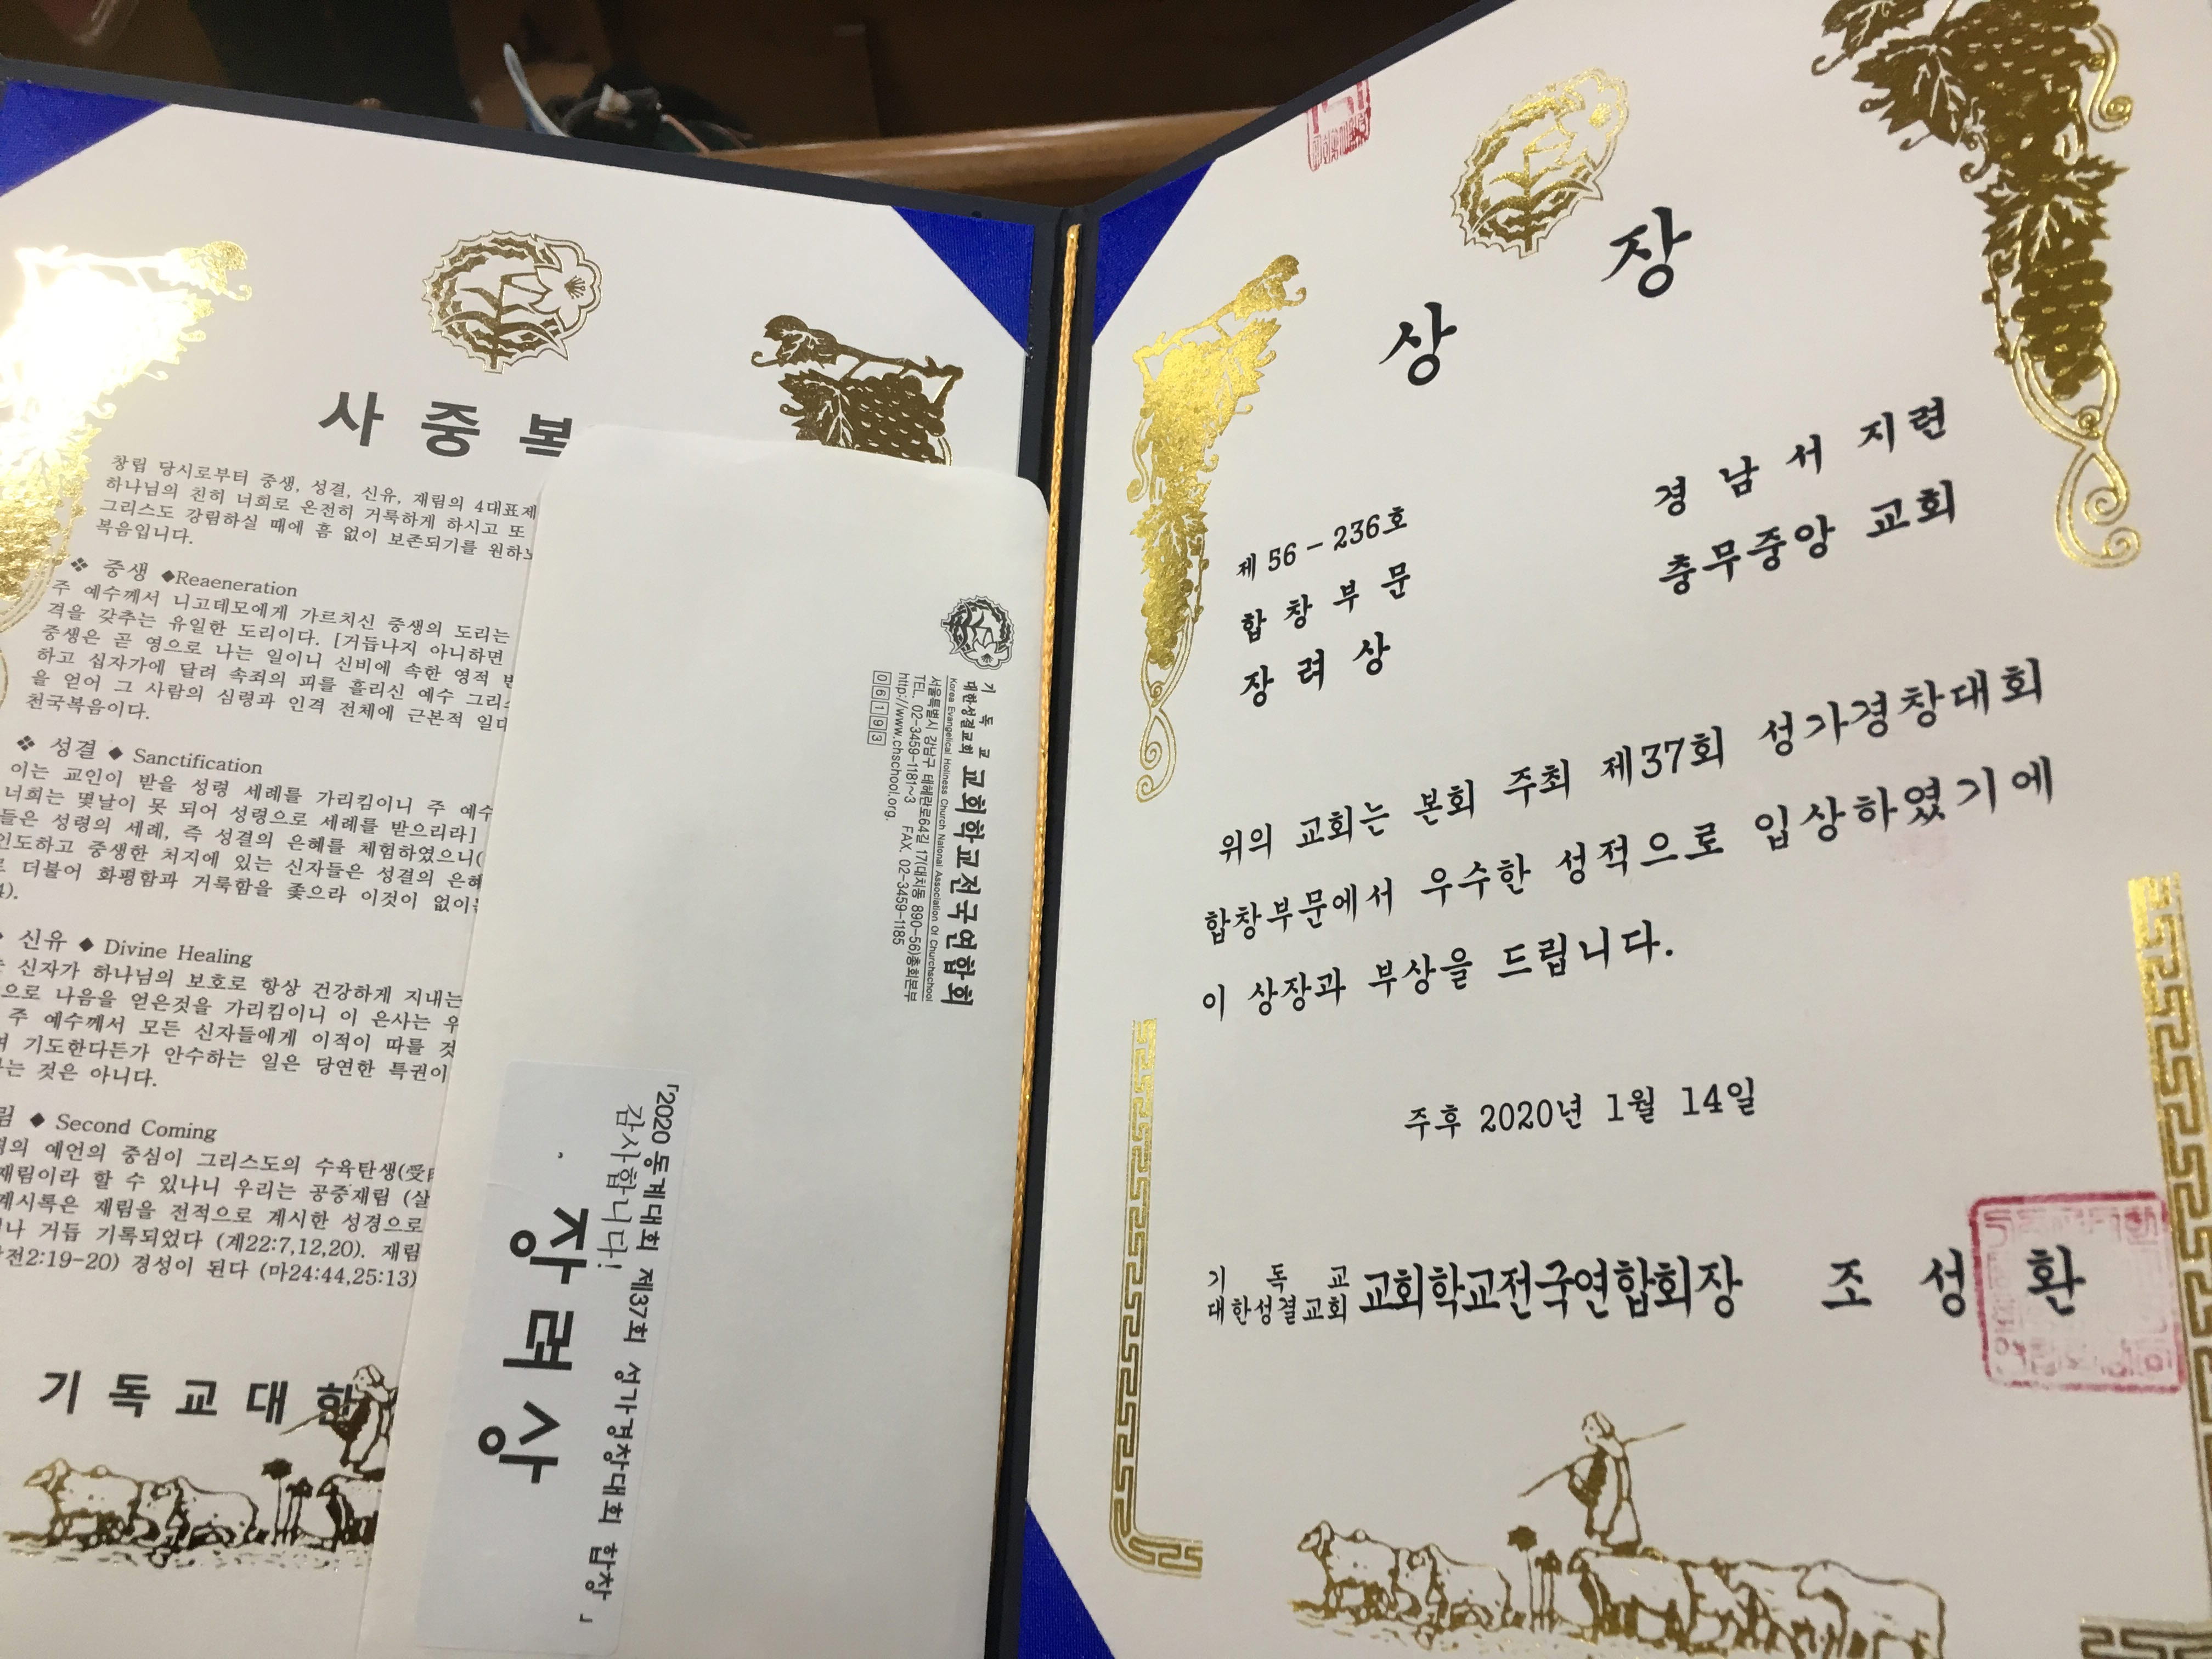 사 중 복
창립 당시로부터 중생, 성결, 신유, 재림의 4대표제
하나님의 친히 너희로 온전히 거룩하게 하시고 또
그리스도 강림하실 때에 흠 없이 보존되기를 원하노
복음입니다.
❖ 중생 ◆Reaeneration
주 예수께서 니고데모에게 가르치신 중생의 도리는
격을 갖추는 유일한 도리이다. [거듭나지 아니하면
중생은 곧 영으로 나는 일이니 신비에 속한 영적
하고 십자가에 달려 속죄의 피를 흘리신 예수 그리
을 얻어 그 사람의 심령과 인격 전체에 근본적 일대
천국복음이다.
❖ 성결 ◆ Sanctification
이는 교인이 받을 성령 세례를 가리킴이니 주 예수
너희는 몇날이 못 되어 성령으로 세례를 받으리라]
들은 성령의 세례, 즉 성결의 은혜를 체험하였으니(
인도하고 중생한 처지에 있는 신자들은 성결의 은혜
더불어 화평함과 거룩함을 좇으라 이것이 없이
4).
신유 ◆ Divine Healing
신자가 하나님의 보호로 항상 건강하게 지내는
으로 나음을 얻은것을 가리킴이니 이 은사는 우
주 예수께서 모든 신자들에게 이적이 따를 것
며 기도한다든가 안수하는 일은 당연한 특권이
는 것은 아니다.
림 ◆ Second Coming
경의 예언의 중심이 그리스도의 수육탄생(受
재림이라 할 수 있나니 우리는 공중재림 (살
계시록은 재림을 전적으로 계시한 성경으로
나 거듭 기록되었다 (계22:7,12,20). 재림
전2:19-20) 경성이 된다 (마24:44,25:13)
기 독 교 대 한
기 독 교
대한성결교회 교회학교전국연합회
Korea Evangelical Holiness Church National Association Of Churchschool
서울특별시 강남구 테헤란로64길 17(대치동 890-56)총회본부
TEL. 02-3459-1181~3 FAX. 02-3459-1185
http://www.chschool.org.
06193
「2020 동계대회 제37회 성가경창대회 합창 」
감사합니다!
장 려 상
상 장
제 56 - 236호
합 창 부 문
장 려 상
경 남 서 지 련
충무중앙 교회
위의 교회는 본회 주최 제37회 성가경창대회
합창부문에서 우수한 성적으로 입상하였기에
이 상장과 부상을 드립니다.
주후 2020년 1월 14일
기 독 교
대한성결교회 교회학교전국연합회장 조 성 환